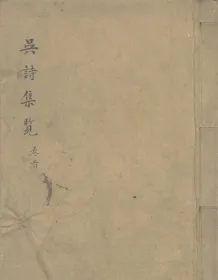 吳詩集覽
卷首